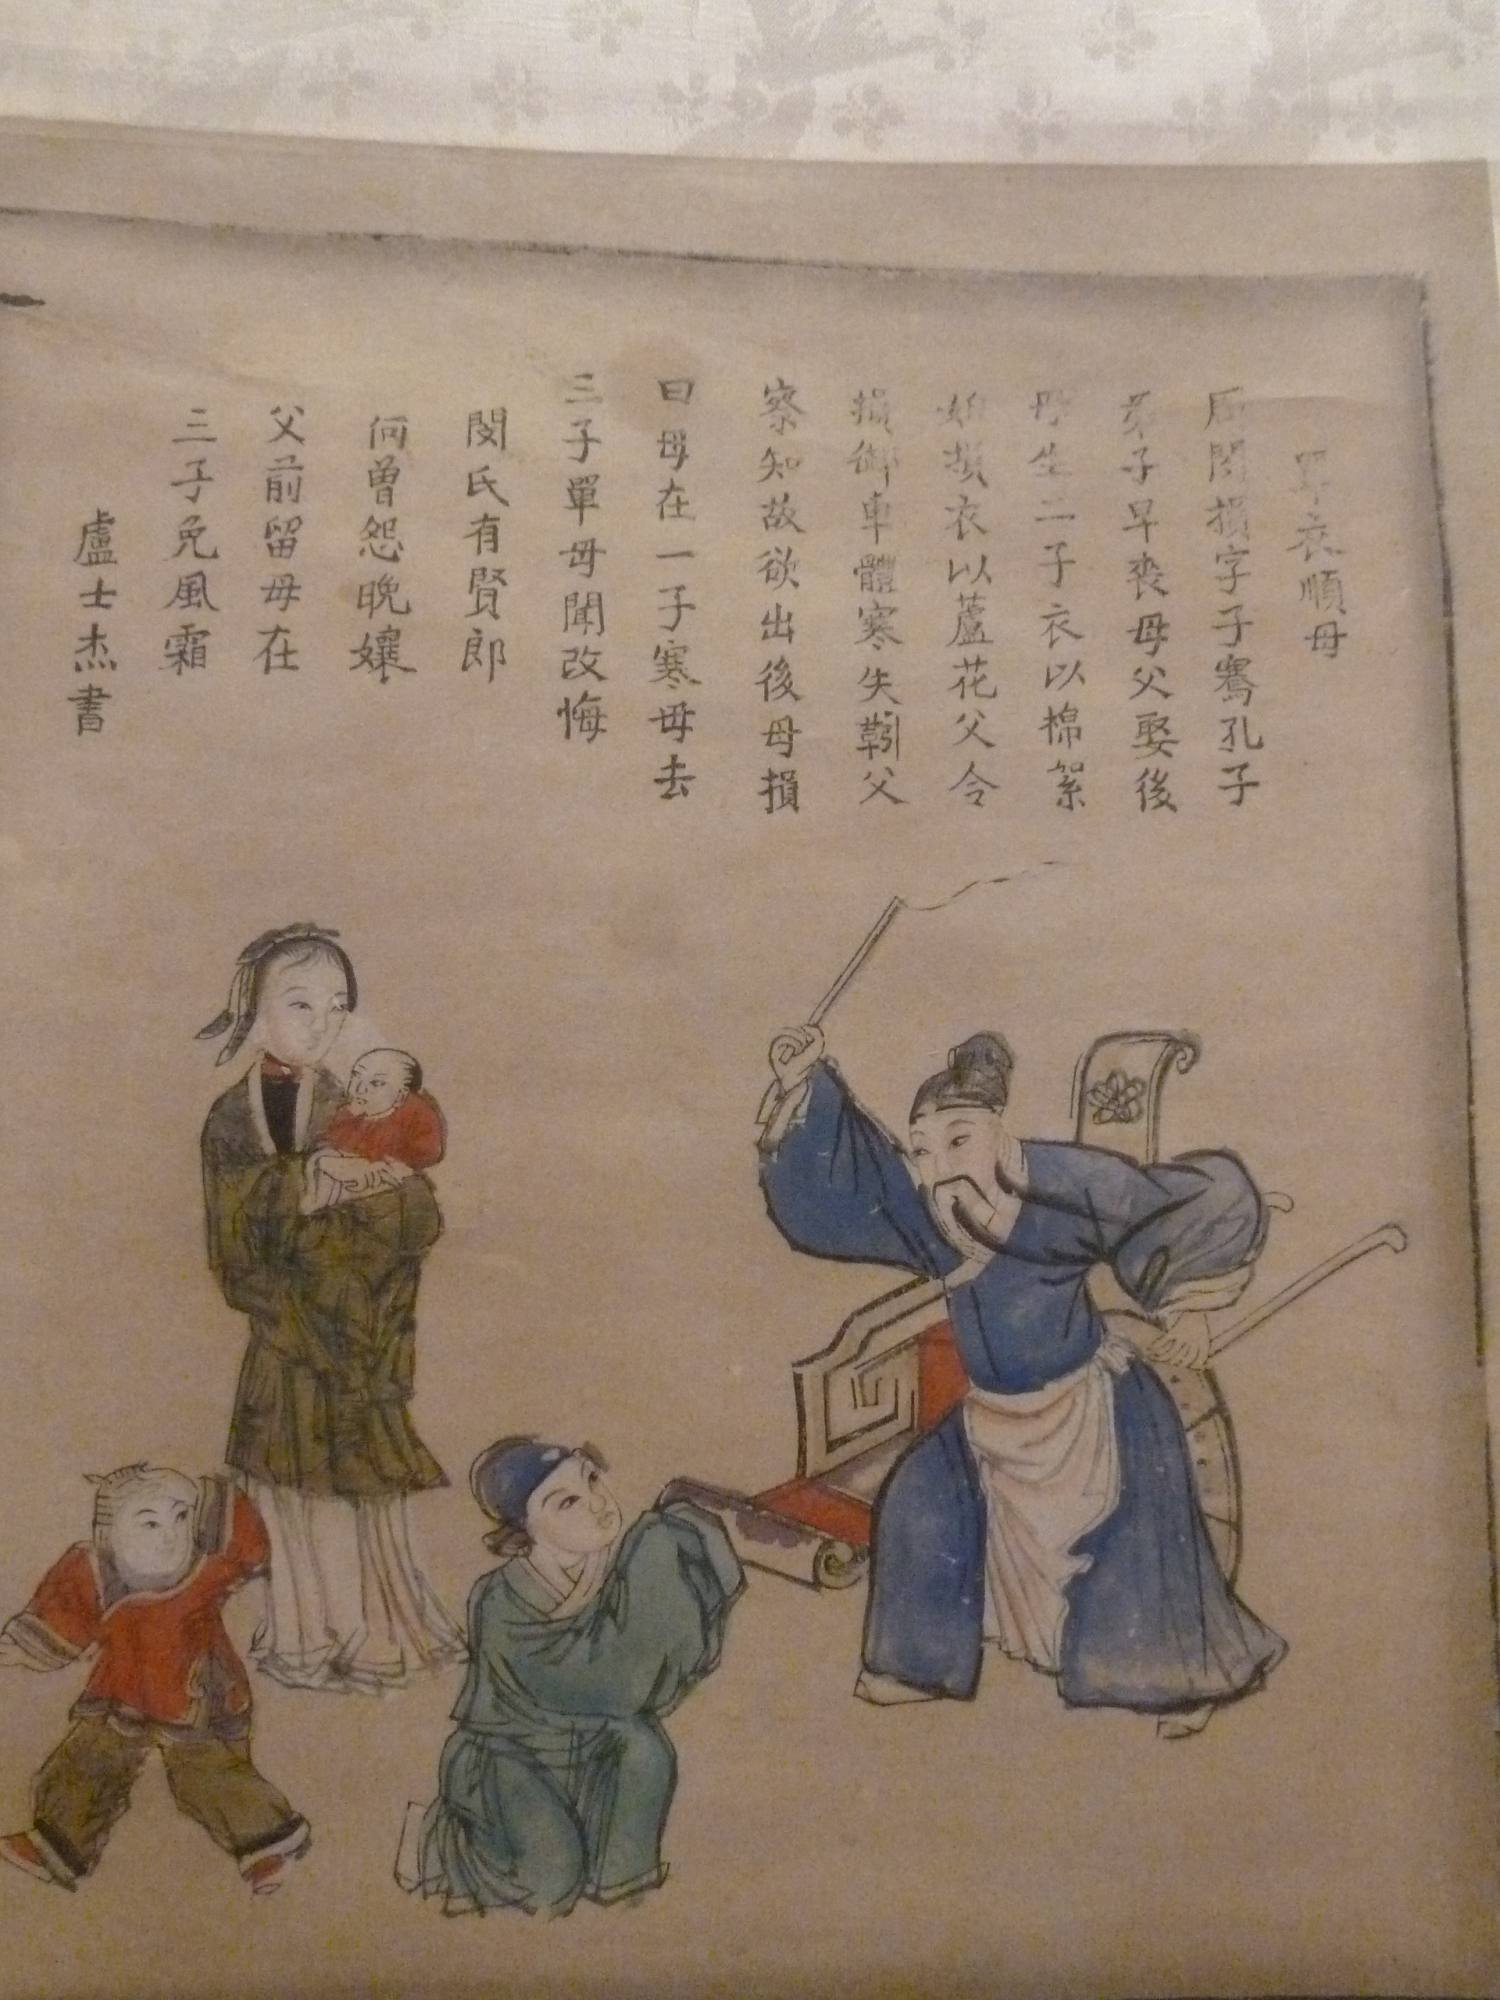 單衣順母
周閔損字子騫孔子
弟子早喪母父娶後
母生二子衣以棉絮
妬損衣以蘆花父令
損御車體寒失靷父
察知故欲出後母損
曰母在一子寒母去
三子單母聞改悔
閔氏有賢郎
何曾怨晚孃
父前留母在
三子免風霜
盧士杰書